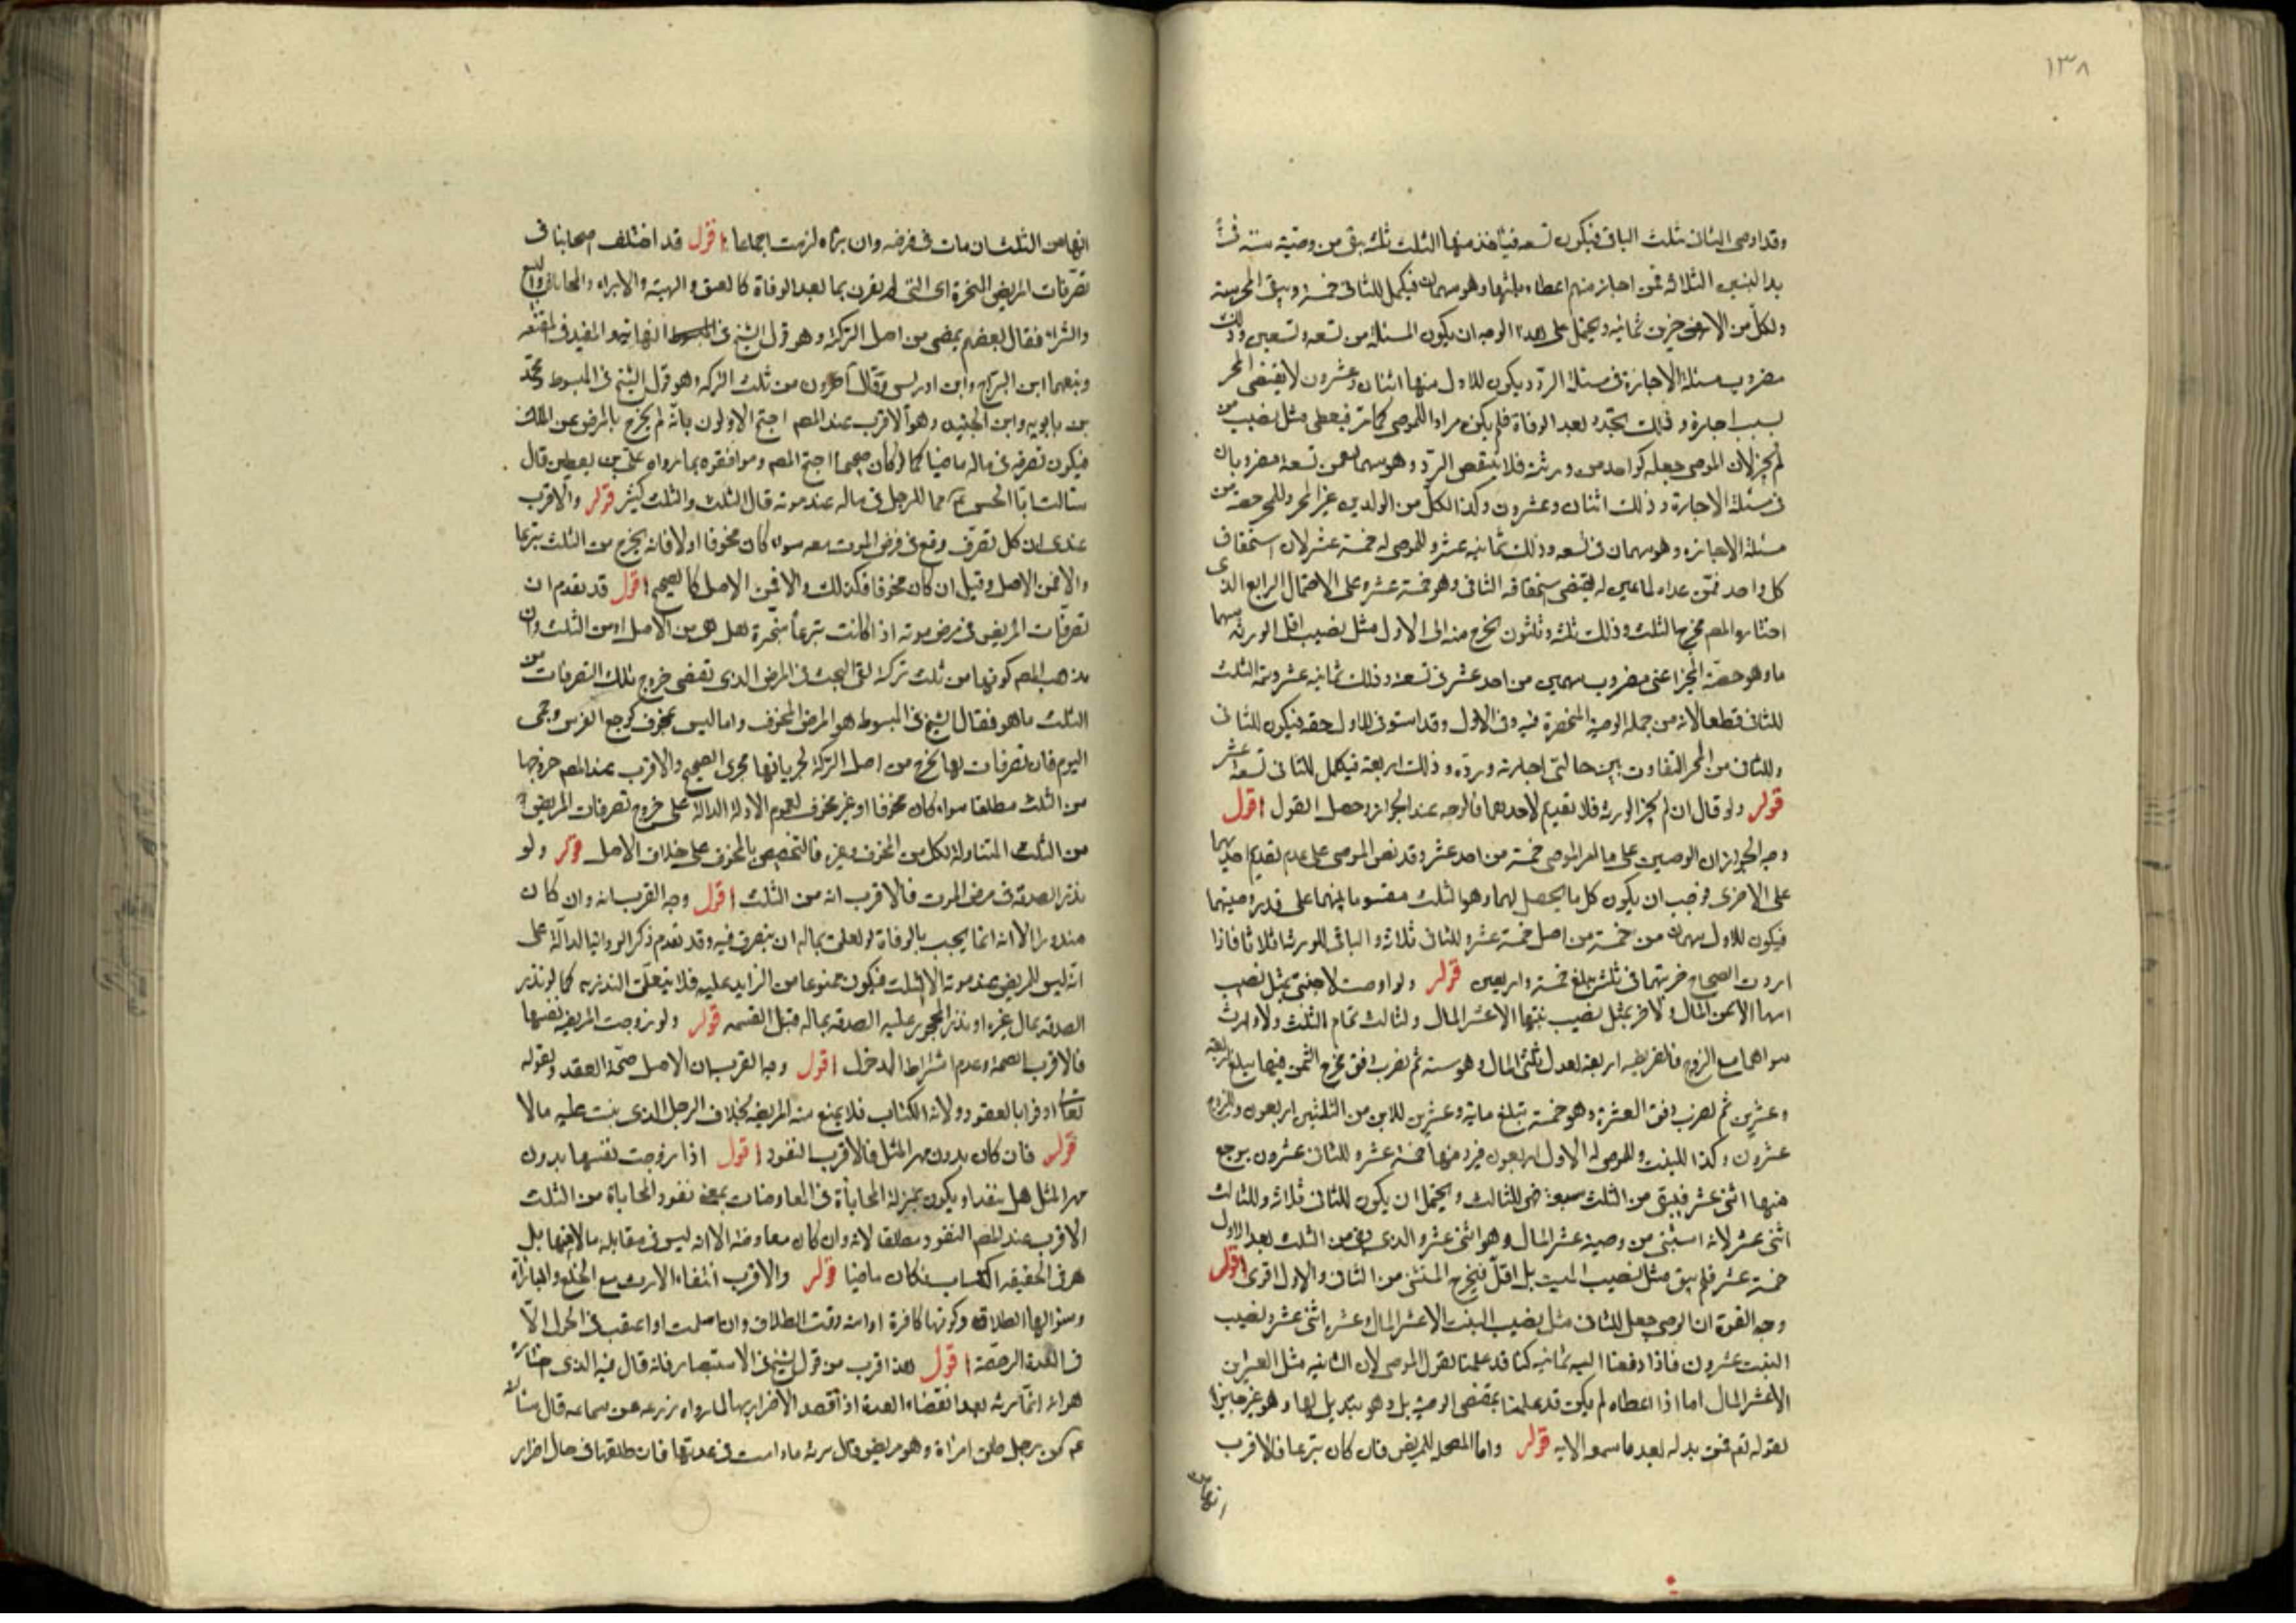 ١٣٨
وقد اوصى الثاني بثلث الباقي فيكون تسعه فياخذ منها الثلث ثلثه يبقى من وصيته سته في
يد البنين الثلاثه فمن اجاز منهم اعطاه ثلثها وهو سهمان فيكمل للثاني خمسة ويبقى المجر سته
ولكل من الاخرين ثمانيه ويحتمل على هذا الوجه ان يكون المسئلة من تسعه وتسعين وذلك
مضروب مسئلة الاجازة في مسئلة الرد ويكون للاول منها اثنان وعشرون لا يقتضى المجر
بسبب اجازة وذلك تجدد بعد الوفاة فلم يكن مرادا للموصى كما مر فيعطى مثل نصيب من
لم يجز لان الموصى جعله كواحد من ورثته فلا ينقص الرد وهو سهمان من تسعة مضروبان
في مسئلة الاجازة وذلك اثنان وعشرون وكذا لكل من الولدين غير المجر وللمجر حصة من
مسئلة الاجازه وهو سهمان في تسعه وذلك ثمانيه عشر وللموصى له خمسة عشر لان استحقاق
كل واحد فمن عداه لما عين له يقتضى استحقاقه الثاني وهو خمسة عشر وعلى الاحتمال الرابع الذي
اختاره المصم مخرج الثلث وذلك ثلثه وثلثون يخرج منه الى الاول مثل نصيب اقل الورثه سهما
وهو حصة المجز اعني مضروب سهمين من احد عشر في تسعه وذلك ثمانيه عشر وتتمة الثلث
للثاني قطعا لانه من جملة الوصية المنحصرة فيه وفي الاول وقد استوفى الاول حقه فيكون للثاني
وللثاني من المجر التفاوت بين حالتي اجازته ورده وذلك اربعة فيكمل للثاني تسعة عشر
قوله ولو قال ان لم يجز الورثه فلا تقديم لاحدهما فالوجه عند الجواز وحصل القول اقول
وجه الجواز ان الوصيتين على ما للموصى خمسة من احد عشر وقد نص الموصى على عدم تقديم احديهما
على الاخرى فوجب ان يكون كل ما يحصل لهما وهو الثلث مقسوما بينهما على قدر وصيتهما
فيكون للاول سهمان من خمسة من اصل خمسة عشر وللثاني ثلاثة والباقي للورثه اثلاثا فاذا
اردت الصحاح ضربتها في ثلثه تبلغ خمسة واربعين قوله ولو اوصت لاجنبي بمثل نصيب
ابنها الا ثمن المال ولاخر بمثل نصيب بنتها الا عشر المال ولثالث تمام الثلث ولا وارث
سواهما مع الزوج فالفريضه اربعة تعدل ثلثى المال وهو سته ثم تضرب وفق مخرج الثمن فيها يبلغ اربعة
وعشرين ثم تضرب وفق العشرة وهو خمسة تبلغ مايه وعشرين للابن من الثلثين اربعون وللزوج
عشرون وكذا للبنت وللموصى له الاول اربعون فيرد منها خمسة عشر وللثاني عشرون يرجع
منها اثنى عشر فيبقى من الثلث سبعة هي للثالث ويحتمل ان يكون للثاني ثلاثة وللثالث
اثنى عشر لانه استثنى من وصيته عشر المال وهو اثنى عشر والذي بقي من الثلث بعد الاول
خمسة عشر فلم يبق مثل نصيب البنت بل اقل فيخرج المستثنى من الثاني والاول اقوى اقول
وجه القوة ان الموصى جعل للثاني مثل نصيب البنت الا عشر المال وعشره اثنى عشر ونصيب
البنت عشرون فاذا دفعنا اليه ثمانيه كنا قد عملنا بقول الموصى لان الثانيه مثل العشرين
الا عشر المال اما اذا اعطاه لم يكن قد عملنا بمقتضى الوصية بل وهو تبديل لها وهو غير جايز
لقوله تعم فمن بدله بعد ما سمعه الايه قوله واما المعجل للمريض فان كان تبرعا فالاقرب
انها من
انها من الثلث ان مات في مرضه وان برئ لزمت اجماعا اقول قد اختلف اصحابنا في
تصرفات المريض المنجزة اى التي لم يقرن بما بعد الوفاة كالعتق والهبة والابراء والمحاباة في البيع
والشراء فقال بعضهم يمضى من اصل التركة وهو قول الشيخ في النهاية والمفيد في المقنعه
وتبعهما ابن البراج وابن ادريس وقال آخرون من ثلث التركه وهو قول الشيخ في المبسوط ومحمد
بن بابويه وابن الجنيد وهو الاقرب عند المصم احتج الاولون بانه لم يخرج بالمرض عن الملك
فيكون تصرفه في ماله ماضيا كما لو كان صحيحا احتج المصم وموافقوه بما رواه على بن يقطين قال
سالت ابا الحسن ع ما للرجل في ماله عند موته قال الثلث والثلث كثير قوله والاقرب
عندى ان كل تصرف وقع في مرض الموت معه سواء كان مخوفا او لا فانه يخرج من الثلث تبرعا
والا فمن الاصل وقيل ان كان مخوفا فكذلك والا فمن الاصل كالصحيح اقول قد تقدم ان
تصرفات المريض في مرض موته اذا كانت تبرعا منجزة هل هي من الاصل او من الثلث وان
مذهب المصم كونها من ثلث تركة بقى البحث في المرض الذي تقتضى خروج تلك التصرفات من
الثلث ما هو فقال الشيخ في المبسوط هو المرض المخوف واما ليس بمخوف كوجع الضرس وحمى
اليوم فان تصرفات لها تخرج من اصل التركة لجريانها مجرى الصحيح والاقرب عند المصم خروجها
من الثلث مطلقا سواء كان مخوفا او غير مخوف لعموم الادلة الدالة على خروج تصرفات المريض
من الثلث المتناولة لكل من المخوف وغيره فالتخصيص بالمخوف على خلاف الاصل قوله ولو
نذر الصدقه في مرض الموت فالاقرب انه من الثلث اقول وجه القرب انه وان كان
منذورا الا انه انما يجب بالوفاة لو لعلى بماله ان يتصرف فيه وقد تقدم ذكر الروايا الدالة على
انه ليس للمريض عند موته الا الثلث فيكون ممنوعا من الزايد عليه فلا يتعلق النذر به كما لو نذر
الصدقه بمال غيره او نذر المحجور عليه الصدقه بماله قبل القسمه قوله ولو زوجت المريضه نفسها
فالاقرب الصحة وعدم اشتراط الدخول اقول وجه القرب ان الاصل صحة العقد ولقوله
تعالى اوفوا بالعقود ولانه اكتساب فلا يمنع منه المريضه بخلاف الرجل الذي يثبت عليه مالا
قوله فان كان بدون مهر المثل فالاقرب النفوذ اقول اذا زوجت نفسها بدون
مهر المثل هل ينفذ او يكون بمنزلة المحاباة في المعاوضات بمعنى نفوذ المحاباة من الثلث
الاقرب عند المصم النفوذ مطلقا لانه وان كان معاوضة الا انه ليس في مقابله مالا منها بل
هو في الحقيقه اكتساب فكان ماضيا قوله والاقرب انتفاء الارث مع الخلع والمباراة
وسؤالها الطلاق وكونها كافرة او امة وقت الطلاق وان اسلمت او اعتقت في الحول الا
في العدة الرجعية اقول هذا اقرب من قول الشيخ في الاستبصار فانه قال فيه الذي اختاره
هو انه انما ترثه بعد انقضاء العدة اذا قصد الاضرار بها لما رواه زرعه عن سماعه قال سالته
ع عن رجل طلق امراة وهو مريض قال ترثه ما دامت في عدتها فان طلقها في حال اضرار